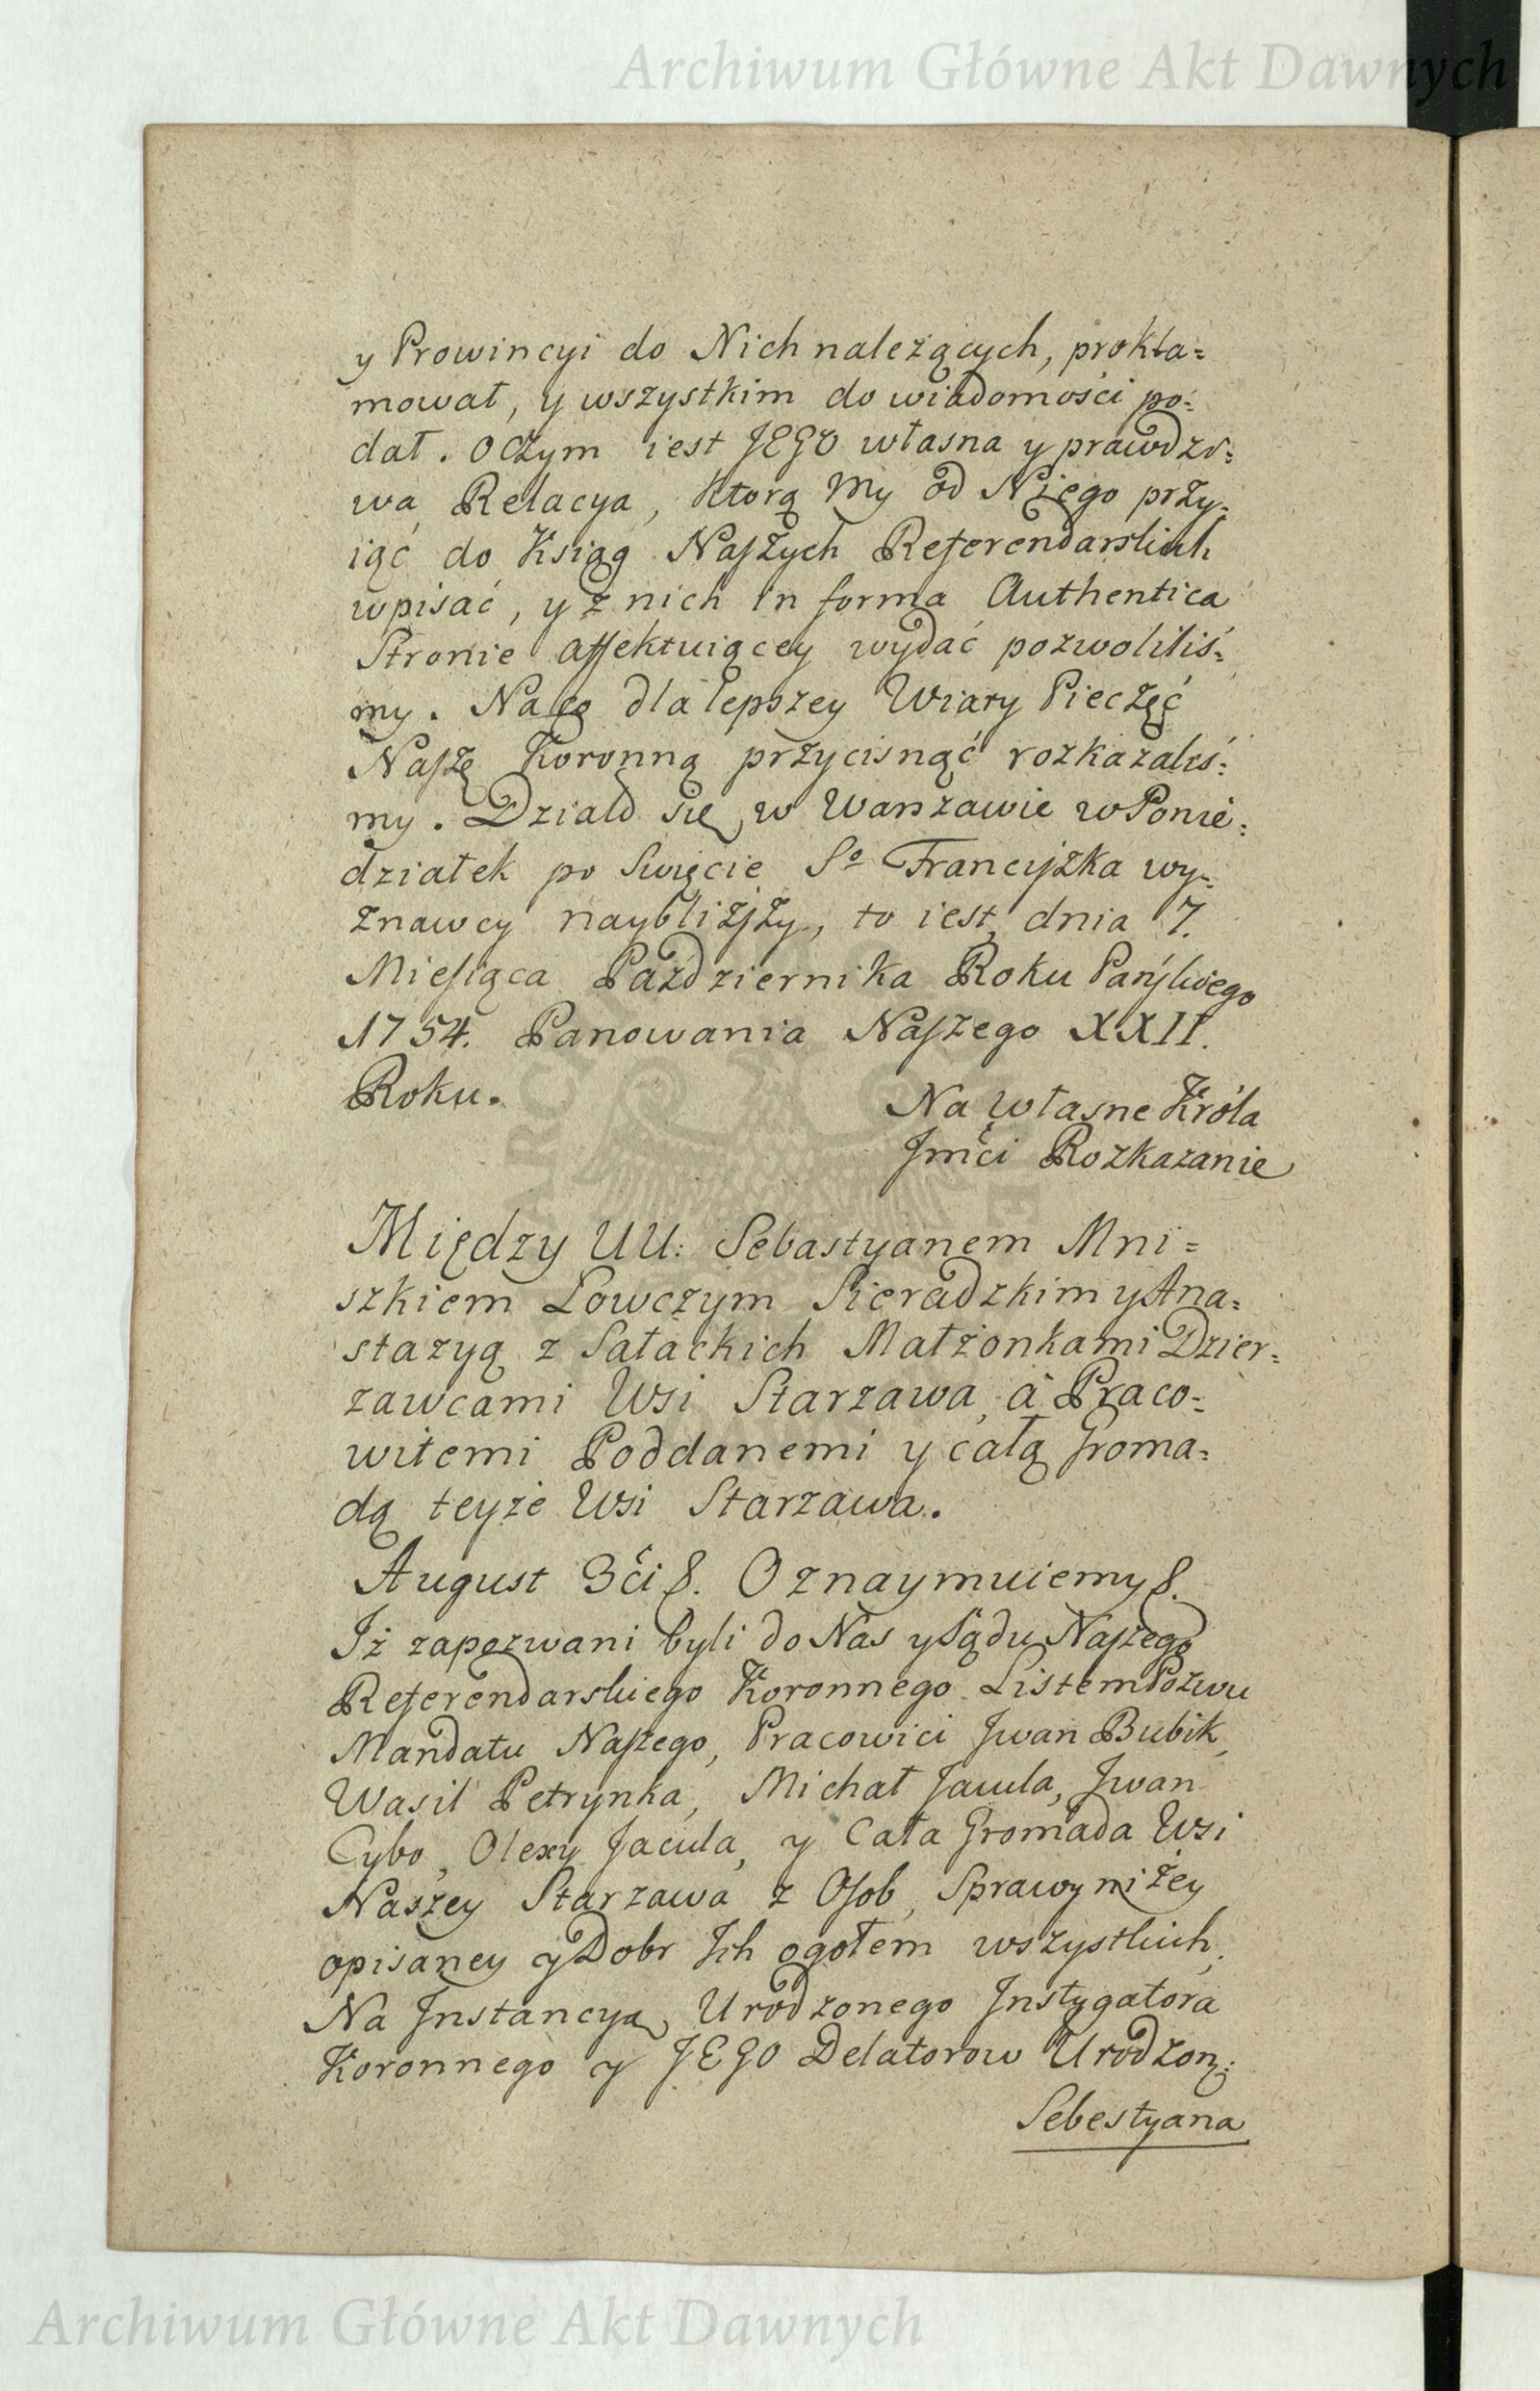 Archiwum Główne Akt Dawnych
y Prowincyi do Nich należących, prokła=
mował, y wszystkim do wiadomości po=
dał. O czym iest JEGO własna y prawdzi=
wa Relacya, ktorą My od Niego przy=
iąć do Ksiąg Naszych Referendarskich
wpisać, y z nich in forma Authentica
Stronie affektuiącey wydać pozwoliliś=
my. Na co dla lepszey Wiary Pieczęć
Naszę Koronną przycisnąć rozkazaliś=
my. Działo się w Warszawie w Ponie=
działek po Swięcie So Franciszka wy=
znawcy naybliższy, to iest dnia 7.
Miesiąca Października Roku Pańskiego
1754. Panowania Naszego XXII.
Roku.
Na własne Króla
Jmći Rozkazanie
Między UU: Sebastyanem Mni=
szkiem Łowczym Sieradzkim y Ana=
stazyą z Sałackich Małżonkami Dzier=
zawcami Wsi Starzawa, à Praco=
witemi Poddanemi y całą Groma=
dą teyże Wsi Starzawa.
August 3ći &. Oznaymuiemy &.
Iż zapozwani byli do Nas y Sądu Naszego
Referendarskiego Koronnego Listem Pozwu
Mandatu Naszego, Pracowici Jwan Bubik,
Wasil Petrynka, Michał Jacula, Jwan
Cybo, Olexy Jacula, y Cała Gromada Wsi
Naszey Starzawa z Osob, Sprawy niżey
opisaney y Dobr Ich ogołem wszystkich,
Na Instancyą Urodzonego Instygatora
Koronnego y JEGO Delatorow Urodzon:
Sebestyana
Archiwum Główne Akt Dawnych